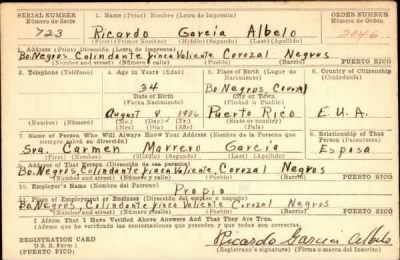 SERIAL NUMBER
Número de Serie
723
1. Name (Print) Nombre (Letra de Imprenta)
Ricardo García Albelo
(First) (Primer Nombre) (Middle) (Segundo) (Last) (Apellido)
ORDER NUMBER
Número de Orden
2046
2. Address (Print) Dirección (Letra de Imprenta)
Bo Negros, Colindante finca Valiente Corozal Negros
(Number and street) (Número y calle) (Pueblo) (Barrio) PUERTO RICO
3. Telephone (Teléfono)
(Number) (Número)
4. Age in Years (Edad)
34
Date of Birth
(Fecha Nacimiento)
August 8 1906
(Mo.) (Day) (Yr.)
5. Place of Birth (Lugar de Nacimiento)
Bo. Negros, Corozal
City or Town
(Ciudad o Pueblo)
Puerto Rico
(State or country)
6. Country of Citizenship
(Ciudadanía)
E. U. A.
7. Name of Person Who Will Always Know Your Address (Nombre de la Persona que siempre sabrá su dirección)
Sra. Carmen Marrero García
(First) (Primer Nombre) (Middle) (Segundo) (Last) (Apellido)
8. Relationship of That Person (Parentesco)
Esposa
9. Address of That Person (Dirección de esa persona)
Bo. Negros, Colindante finca Valiente Corozal Negros
(Number and street) (Número y calle) (Pueblo) (Barrio) PUERTO RICO
10. Employer's Name (Nombre del Patrono)
Propio
11. Place of Employment or Business (Dirección del empleo o negocio)
Bo. Negros, Colindante finca Valiente Corozal Negros
(Number and street) (Número y calle) (Pueblo) (Barrio) PUERTO RICO
I Affirm That I Have Verified Above Answers And That They Are True.
Afirmo que he verificado las contestaciones que preceden y que todas son correctas.
REGISTRATION CARD
D. S. S. Form 1
PUERTO RICO
Ricardo García Albelo
(Registrant's signature) (Firma o marca del Inscrito)